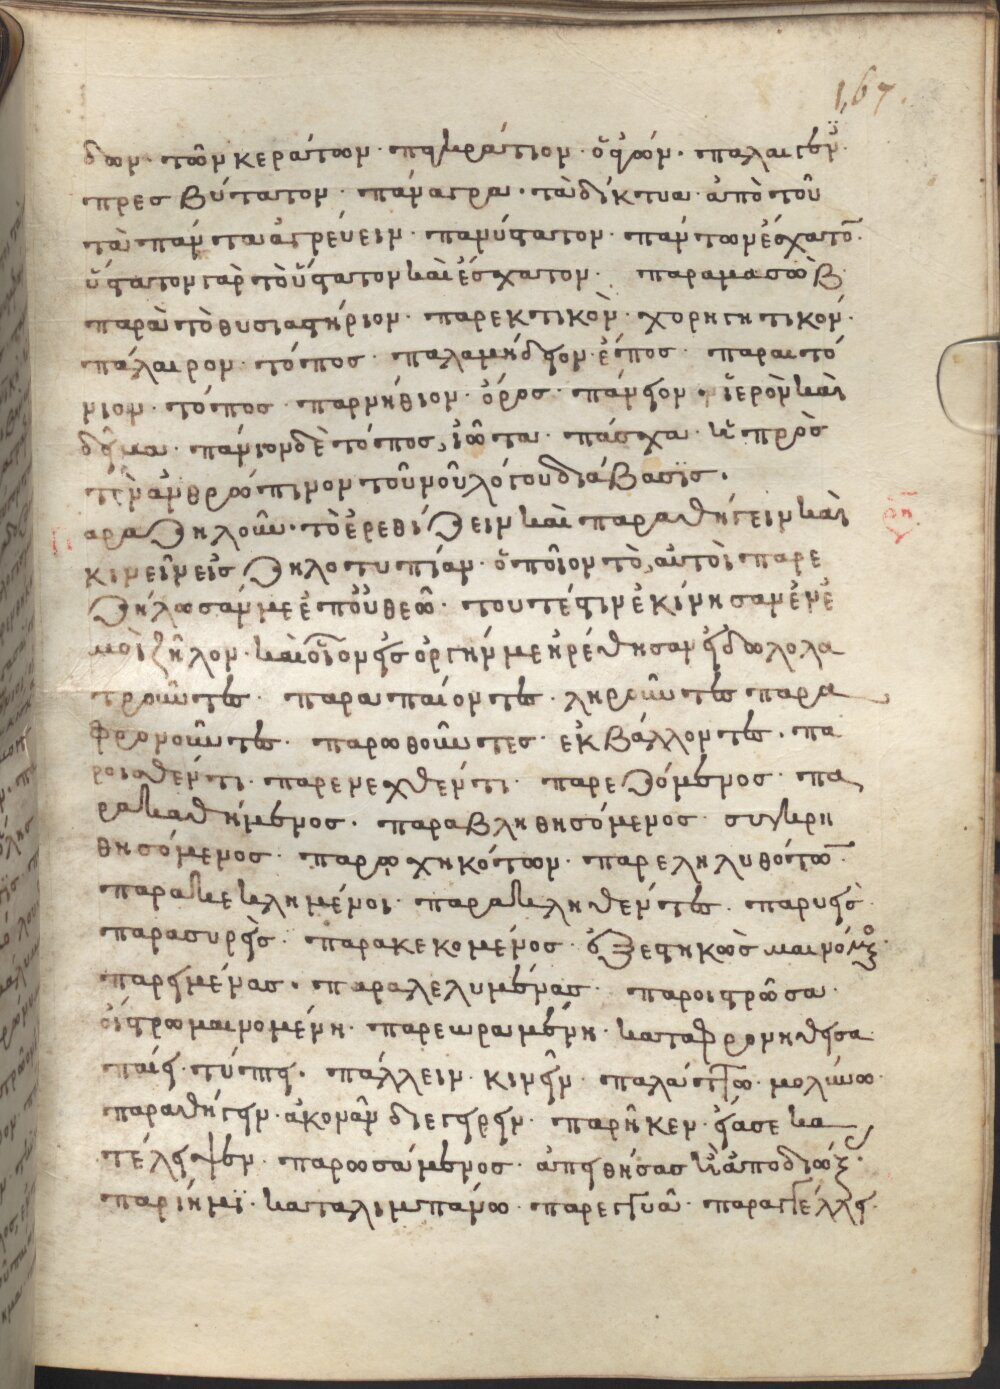 167.
δων· τῶν κεράτων· παγκράτιον· ὁ ἀγών· παλαιγενῆ·
πρεσβύτατον· πάναγρα· τὰ δίκτυα· ἀπὸ τοῦ
τὰ πάντα ἀγρεύειν· πανύστατον· πάντων ἔσχατον·
ὕστατον γὰρ τὸ ὕστατον καὶ ἔσχατον· παραμασὼβ
παρὰ τὸ θυσιαστήριον· παρεκτικὸν· χορηγητικόν·
πάλαιρον· τόπος· παλαμήδειον· ἔπος· παραιτό
νιον· τόπος· παρνήθιον· ὄρος· πάνειον· ἱερὸν καὶ
δεῖμα· πάνιον δὲ τόπος, ἰῶτα· πάσχα· ἡ πρὸς
τὴν ἀνθρώπινον τοῦ νοῦ λόγου διάβασις·
αραζηλοῦν· τὸ ἐρεθίζειν καὶ παραθήγειν καὶ
κινεῖν εἰς ζηλοτυπίαν· ὁποῖον τὸ, αὐτοὶ παρε
ζήλωσάν με ἐπ' οὐ θεῶ· τουτέστιν ἐκίνησαν ἐν ἐ
μοὶ ζῆλον· καὶ οἷον εἰς ὀργήν με ἠρέθησαν εἰδωλολα
τροῦντες· παραπαίοντες· ληροῦντες παρα
φρονοῦντες· παρωθοῦντες· ἐκβάλλοντες· πα
ροισθέντι· παρενεχθέντι· παρεζόμενος· πα
ρακαθήμενος· παραβληθησόμενος· συγκρη
θησόμενος· παρωχηκότων· παρεληλυθότων·
παρακεκλημένοι· παρακληθέντες· παρυεὶς·
παρασυρεὶς· παρακεκομένος· ἐξεστηκὼς μαινόμενος·
παρειμένας· παραλελυμένας· παροιστρῶσα·
οἰστρωμαινομένη· παρεωραμένη· καταφρονηθεῖσα
παίει· τύπτει· πάλλειν· κινεῖν· παλάσσω· μολύνω·
παραθήγειν· ἀκονᾶν διεγείρειν· παρῆκεν· εἴασε κα
τέλειψεν· παρωσάμενος· ἀπειθήσας καὶ ἀποδιώξας·
παρίημι· καταλιμπάνω· παρεγγυᾶ· παραγγέλλει·